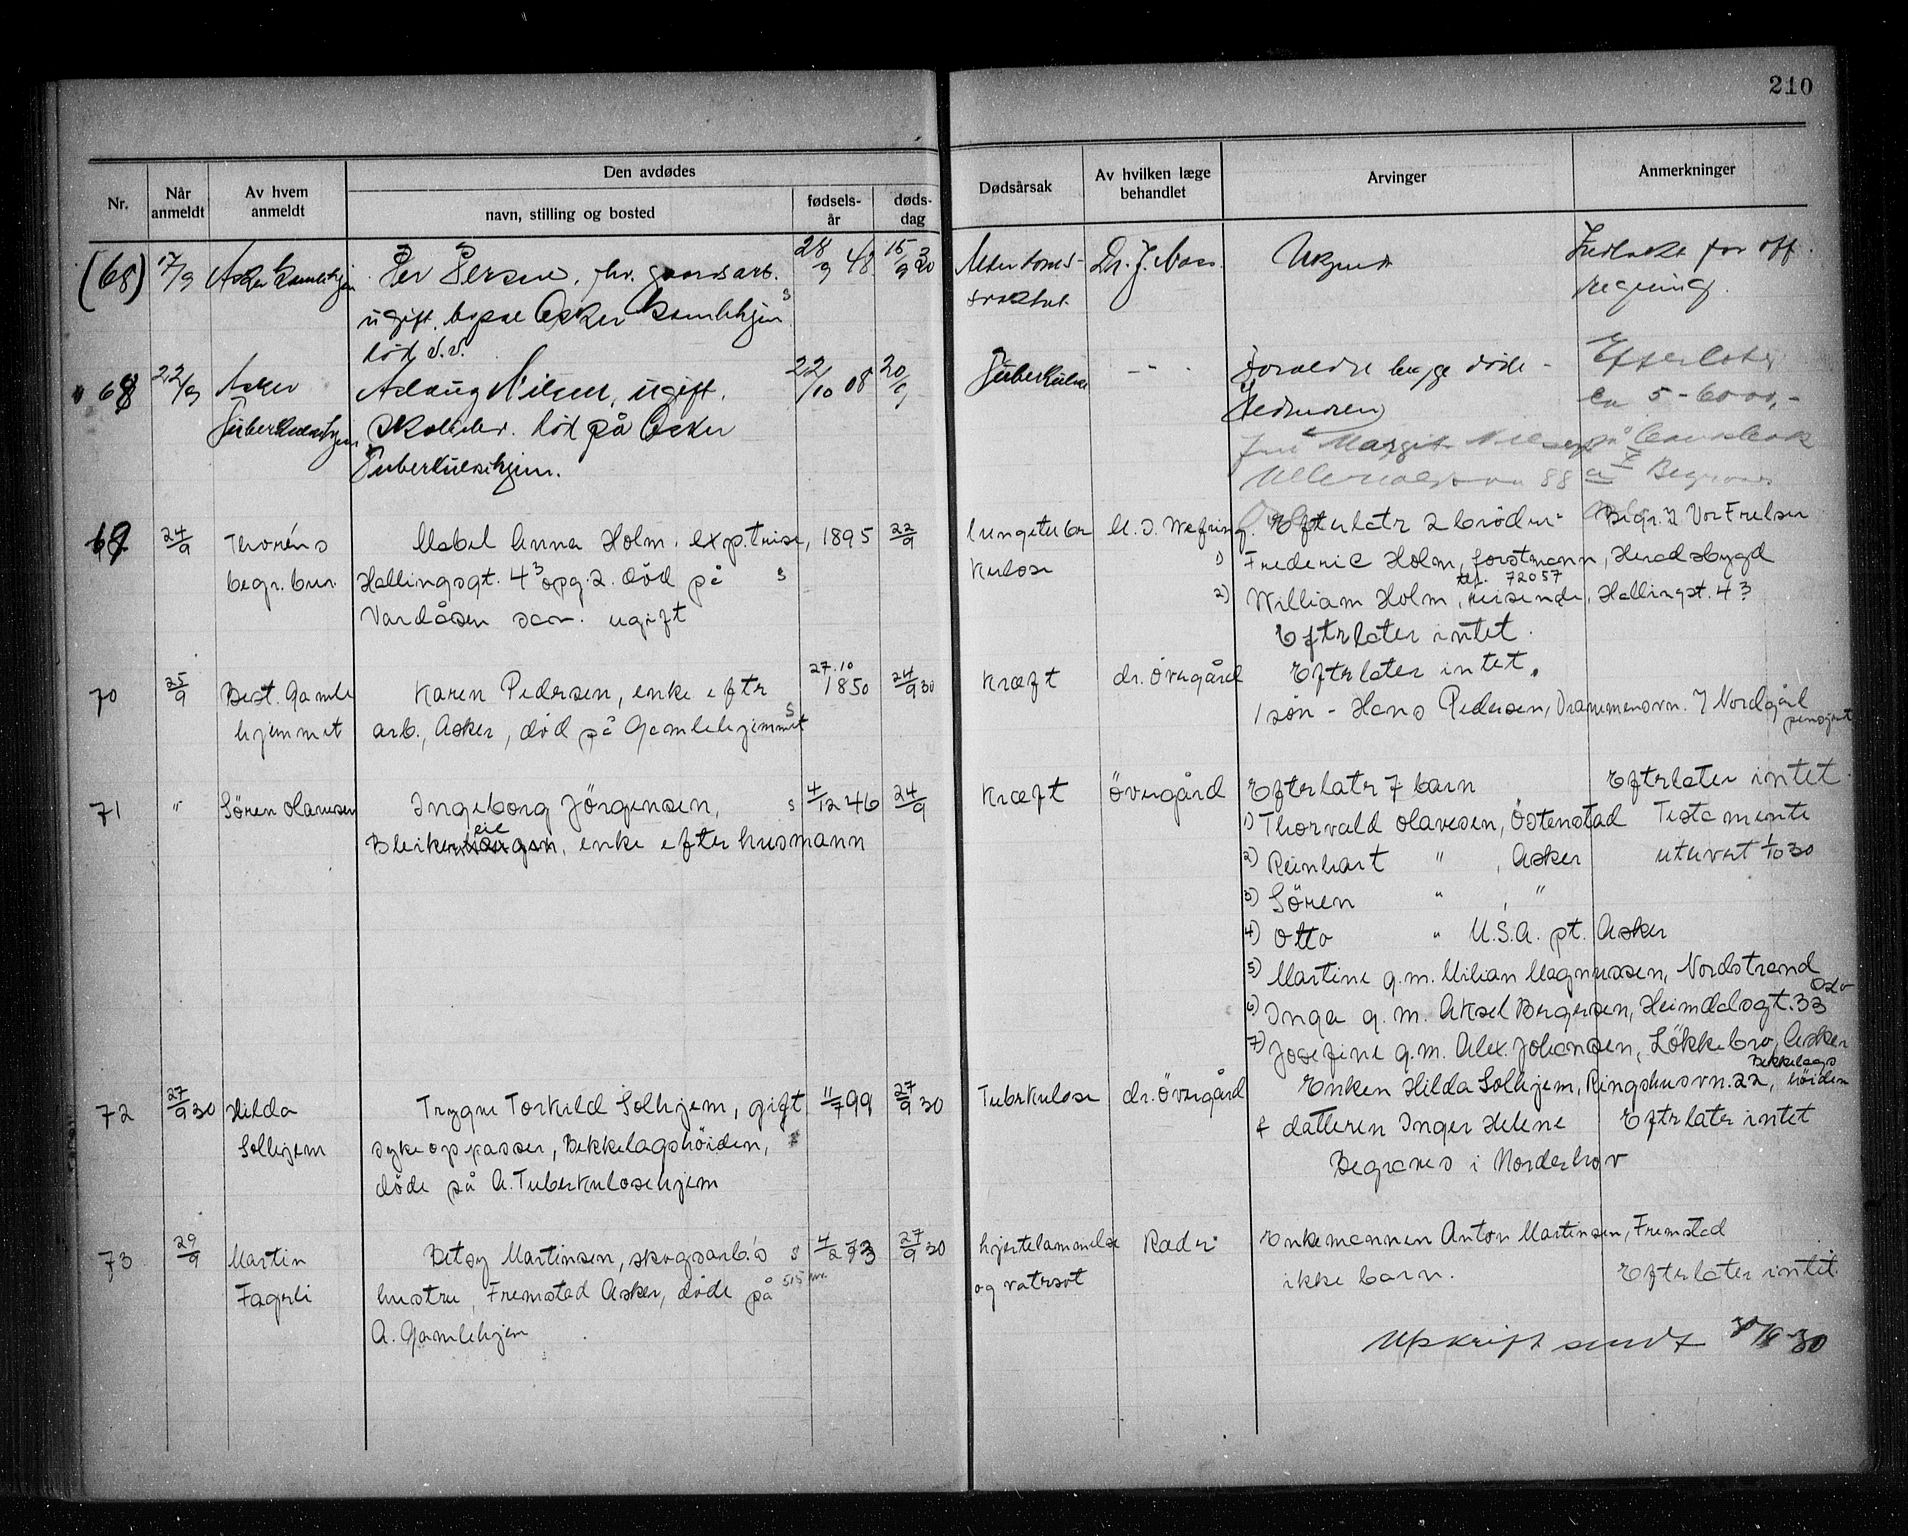 210
Nr. Når anmeldt Av hvem anmeldt Den avdødes navn, stilling og bosted fødsels-år døds-dag Dødsårsak Av hvilken læge behandlet Arvinger Anmerkninger
(68) 17/9 Asker Gamlehjem Per Persen, fhv. gaardsarb. 28/9 48 15/9 30 Alderdoms- Dr. J. Ukjendt for off.
ugift, Asker Gamlehjem s
død s.s.
68 22/9 Asker Aslaug Nilsen, ugift. 22/10 08 20/9 Tuberkulose - - Foreldre begge døde - Efterlater
død på Asker Søsteren ca 5-6000,-
Tuberkulosehjem Tuberkulosehjem. Margit Nilsen på bankbok
Ullevålsvn 88 a Begraves
69 24/9 Thoréns Mabel Anna Holm, exp.trise, 1895 22/9 lungetuber M. D. Wefring. Efterlatr 2 brödre Begr. Vor Frelser
begr.bur. Hallingsgt. 4³ opg. 2. död på s kulose 1) Frederic Holm, forstmann, Heradsbygd
tlf. 72057
Vardåsen san. ugift 2) William Holm, reisende, Hallingst. 4³
Eftrlater intet.
70 25/9 Best. Gamle Karen Pedersen, enke eftr 27.10 1850 24/9 30 Kræft dr. Övergård Eftrlater intet.
hjemmet arb., Asker, död på Gamlehjemmet s 1 søn - Hans Pedersen, Drammensvn. 7 Nordgård pensjonat
71 " Søren Olavesen Ingeborg Jörgensen, s 4/12 46 24/9 Kræft Övergård Efterlatr 7 barn Eftrlater intet.
Bleikereie, enke efter husmann 1) Thorvald Olavesen, Östenstad Testamente
2) Reinhart " , Asker utlevert 1/10 30
3) Sören " , "
4) Otto " U.S.A. pt. Asker
5) Martine g.m. Milian Magnussen, Nordstrand
6) Inga g.m. Aksel Bergersen, Heimdalsgt. 33 Oslo
7) Josefine g.m. Alex. Johansen, Lökkebro, Asker
72 27/9 30 Hilda Trygve Torkild Solhjem, gift 11/7 99 27/9 30 Tuberkulose dr. Övergård Enken Hilda Solhjem, Ringshusvn. 22, Bekkelagshöiden
Solhjem sykeopasser, Bekkelagshöiden, s & datteren Inger Helene Eftrlater intet
döde på A. Tuberkulosehjem Begraves i Norderhov
73 29/9 Martin Betsy Martinsen, skogsarb.'s s 4/2 93 27/9 30 hjertelammelse Rader Enkemannen Anton Martinsen, Fremstad
Fagerli hustru, Fremstad Asker, döde på og vatersot ikke barn. Eftrlater intet.
A. Gamlehjem
Utskrift sendt 30/9-30